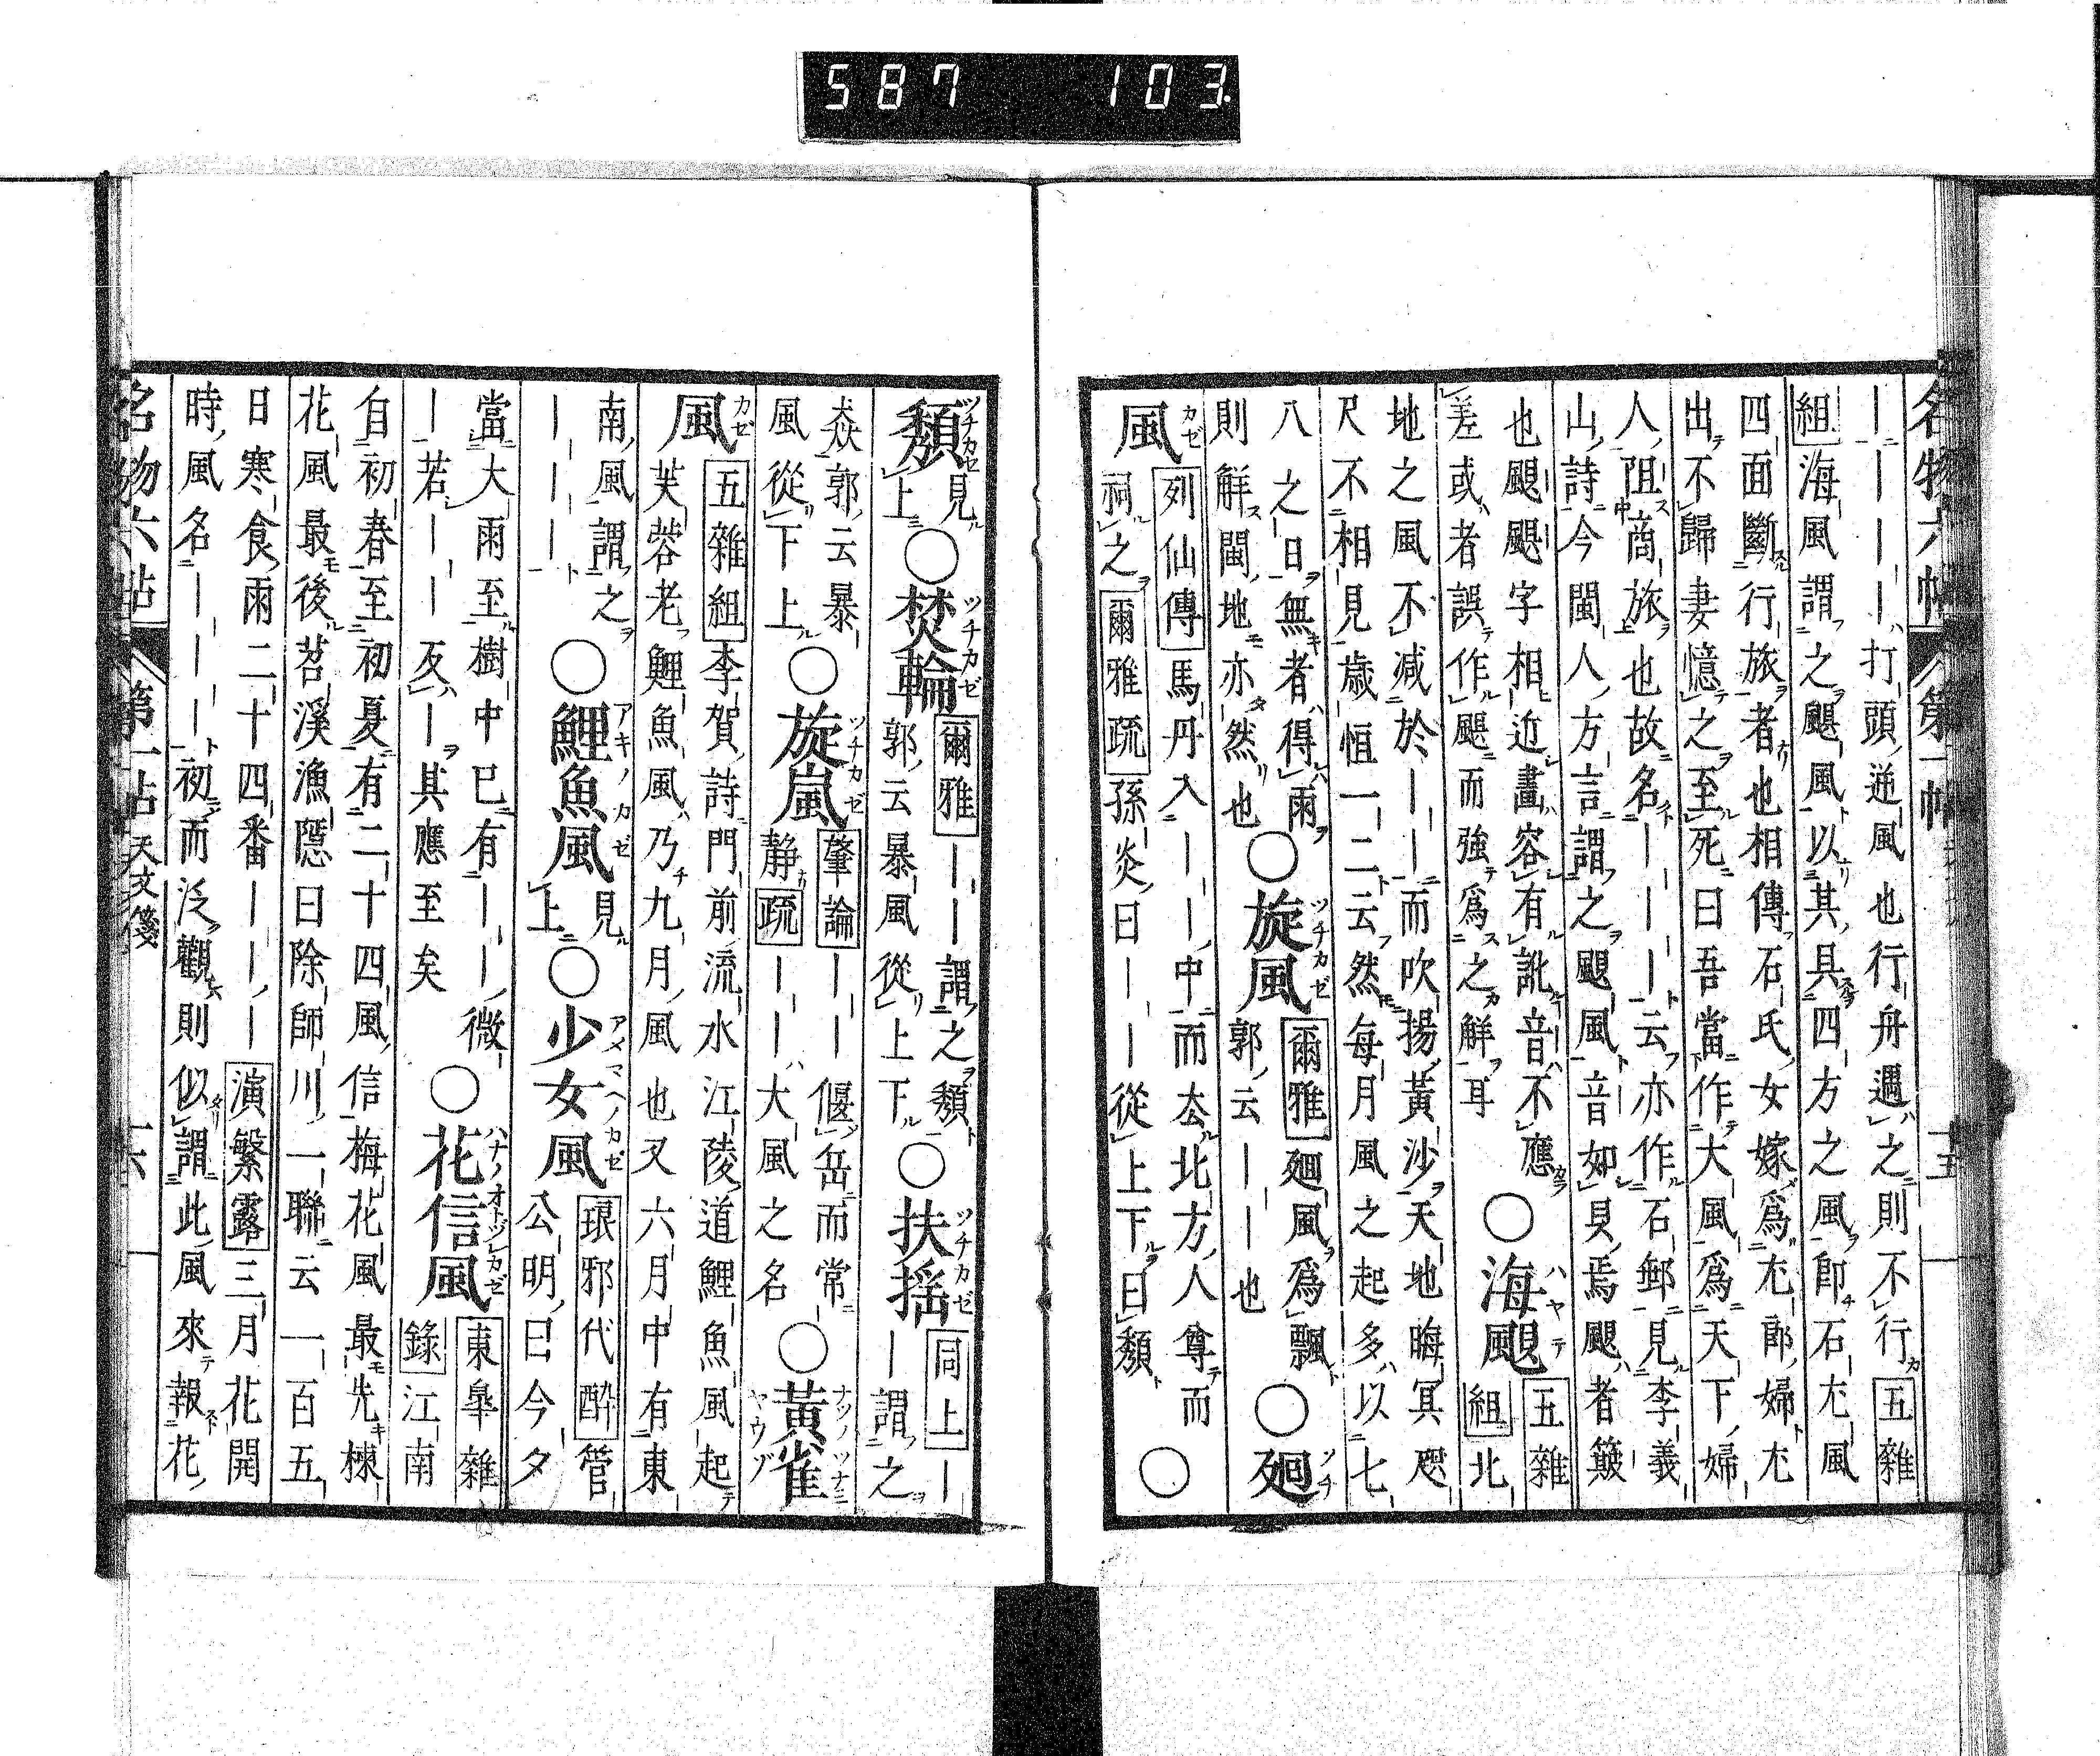 名物六帖 第一帖 十五
————打頭逆風也行舟遇之則不行五雜
組海風謂之颶風以其具四方之風即石尤風
四面斷行旅者也相傳石氏女嫁爲尤郎婦尤
出不歸妻憶之至死曰吾當作大風爲天下婦
人阻商旅也故名———云亦作石郵見李義
山詩今閩人方言謂之颶風音如貝焉颶者簸
也颶颶字相近畫容有訛音不應
差或者誤作颶而強爲之解耳
○海颶 ハヤテ
五雜
組北
地之風不減於——而吹揚黃沙天地晦冥咫
尺不相見歲恒一二云然每月風之起多以七
八之日無者得雨
則解閩地亦然也
○旋風 ツチカゼ
爾雅廻風爲飄
郭云——也
○廻 ツチ
風 カゼ
列仙傳馬丹入——中而去北方人尊而
祠之爾雅疏孫炎曰——從上下曰頹
○
頹 ツチカゼ
見
上
○焚輪 ツチカゼ
爾雅——謂之頹
郭云暴風從上下
○扶搖 ツチカゼ
同上—
—謂之
猋郭云暴
風從下上
○旋嵐 ツチカゼ
肇論——偃岳而常
靜疏——大風之名
○黃雀
風 カゼ
五雜組李賀詩門前流水江陵道鯉魚風起
芙蓉老鯉魚風乃九月風也又六月中有東
南風謂之
———
○鯉魚風 アキノカゼ
見
上
○少女風 アメマヘノカゼ
琅邪代醉管
公明曰今夕
當大雨至樹中已有——微
—若——反—其應至矣
○花信風 ハナノオトヅレカゼ
東皐雜
錄江南
自初春至初夏有二十四風信梅花風最先楝
花風最後苕溪漁隱曰除師川一聯云一百五
日寒食雨二十四番———演繁露三月花開
時風名———初而泛觀則似謂此風來報花
名物六帖 第一帖 天文箋 十六
587 103